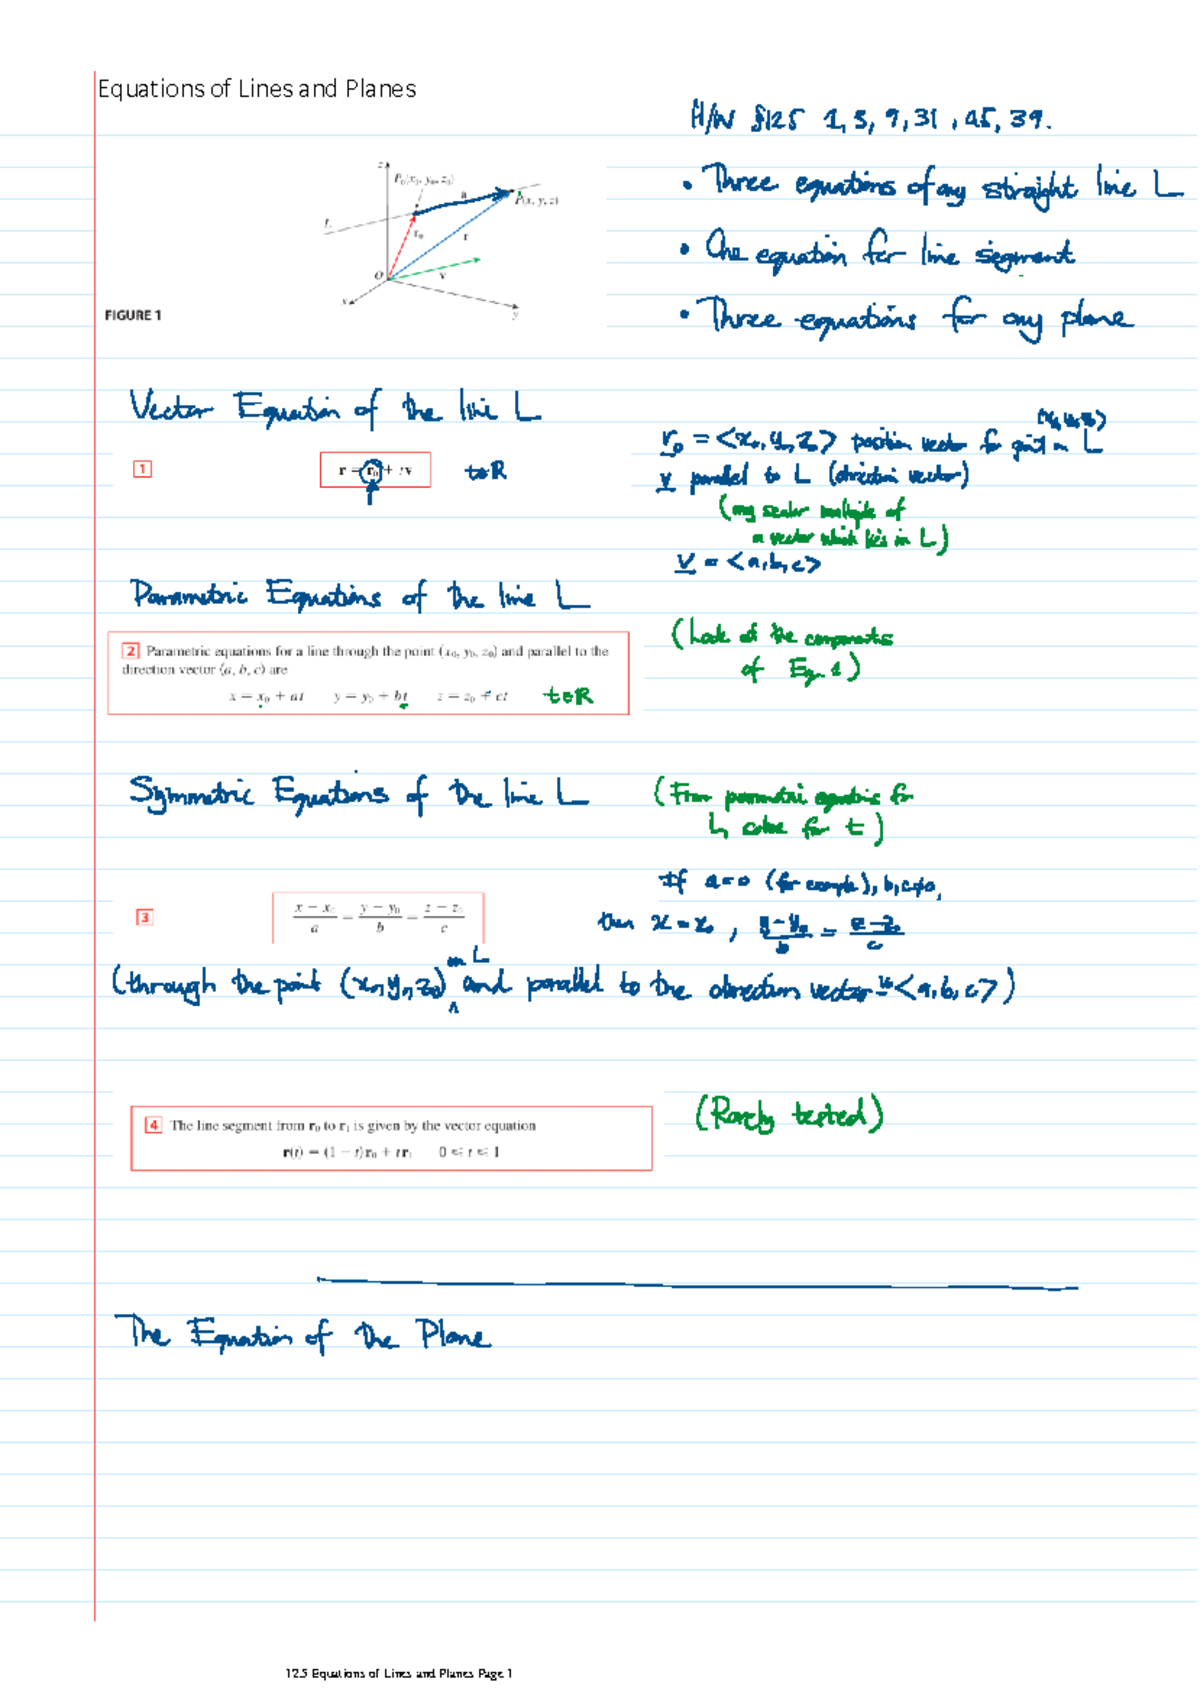 Equations of Lines and Planes
H/W §12.5 1, 5, 9, 31, 45, 39.
• Three equations of any straight line L
• One equation for line segment
• Three equations for any plane
z
P₀(x₀, y₀, z₀)
P(x, y, z)
L
a
r₀
r
O
v
x
y
FIGURE 1
Vector Equation of the line L
1 r = r₀ + tv t∈ℝ
r₀ = <x₀, y₀, z₀> position vector for point on L
(x₀, y₀, z₀)
v parallel to L (direction vector)
(any scalar multiple of
a vector which lies in L)
v = <a, b, c>
Parametric Equations of the line L
2 Parametric equations for a line through the point (x₀, y₀, z₀) and parallel to the
direction vector ⟨a, b, c⟩ are
x = x₀ + at y = y₀ + bt z = z₀ + ct t∈ℝ
(Look at the components
of Eq. 1)
Symmetric Equations of the line L
(From parametric equations for
L, solve for t)
3 (x − x₀)/a = (y − y₀)/b = (z − z₀)/c
If a=0 (for example), b, c≠0,
then x = x₀, (y−y₀)/b = (z−z₀)/c
(through the point (x₀, y₀, z₀) on L and parallel to the direction vector v=<a, b, c>)
4 The line segment from r₀ to r₁ is given by the vector equation
r(t) = (1 − t)r₀ + tr₁ 0 ≤ t ≤ 1
(Rarely tested)
The Equation of the Plane
12.5 Equations of Lines and Planes Page 1